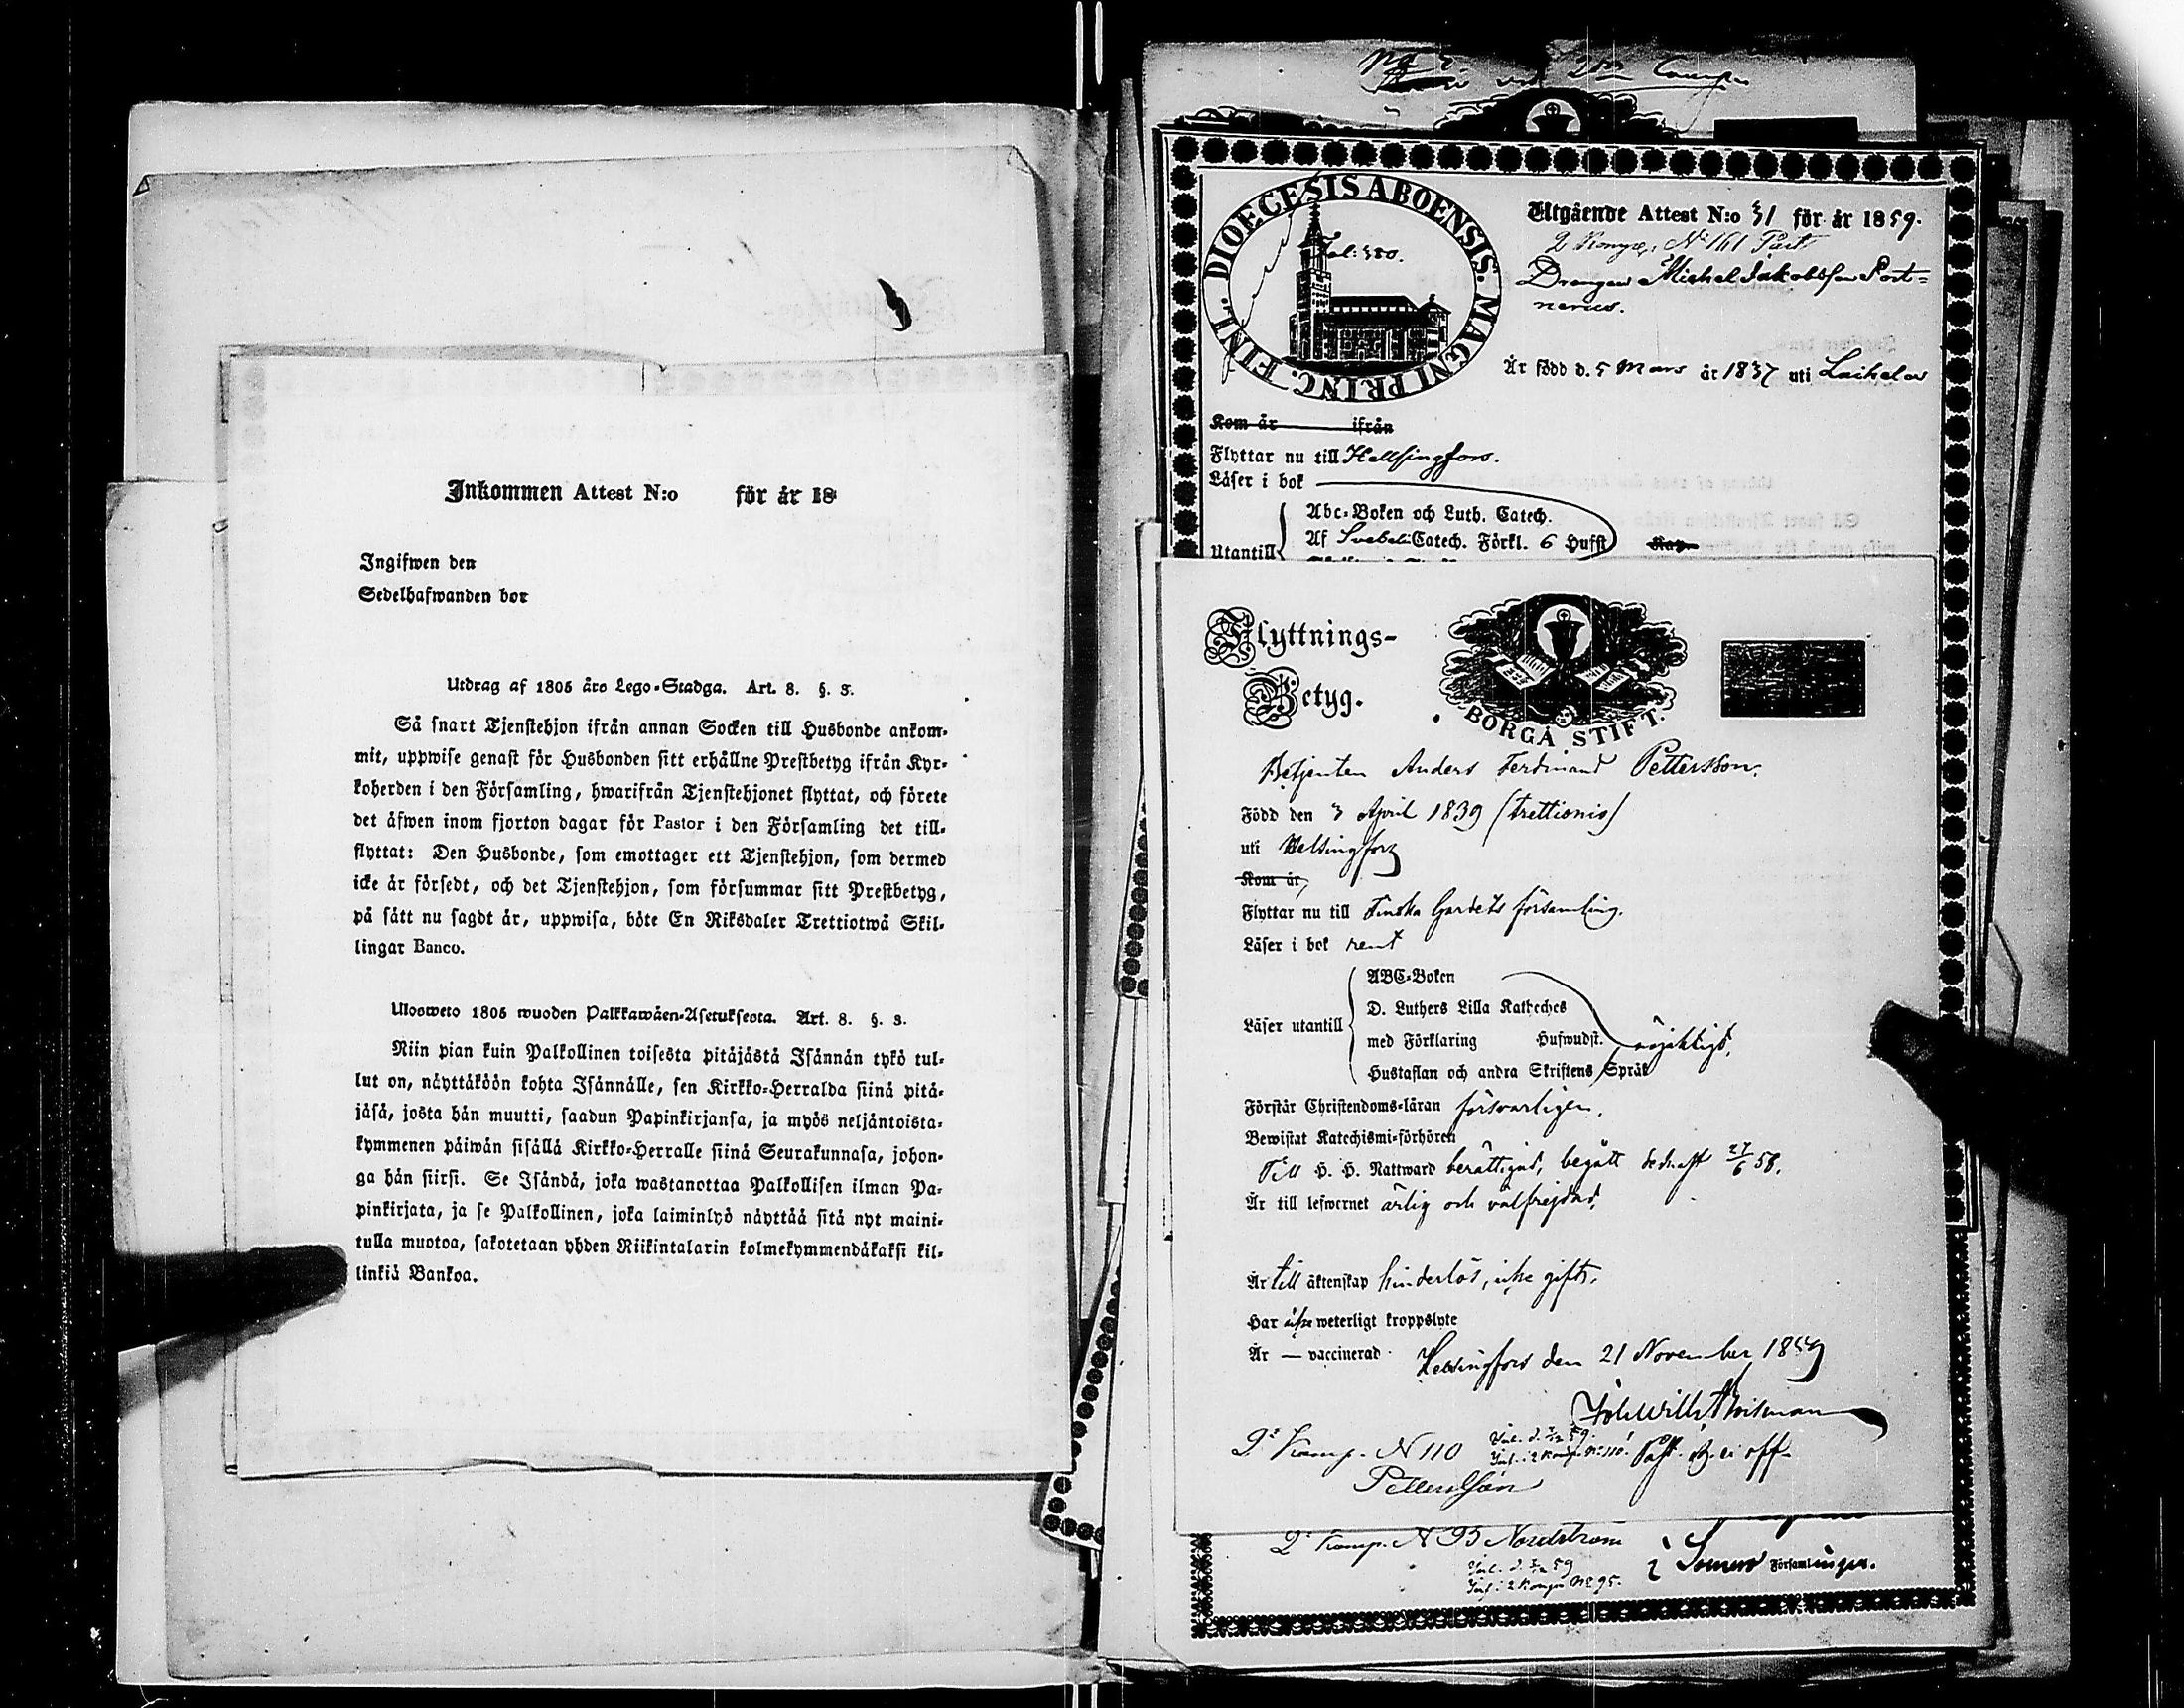 Inkommen Attest N:o för år 18
Ingifwen den
Sedelhafwanden bor
Utdrag af 1805 års Lego-Stadga. Art. 8. §. 3.
Så snart Tjenstehjon ifrån annan Socken till Husbonde ankom-
mit, uppwise genast för Husbonden sitt erhållne Prestbetyg ifrån Kyr-
koherden i den Församling, hwarifrån Tjenstehjonet flyttat, och förete
det äfwen inom fjorton dagar för Pastor i den Församling det till-
flyttat: Den Husbonde, som emottager ett Tjenstehjon, som dermed
icke är försedt, och det Tjenstehjon, som försummar sitt Prestbetyg,
på sätt nu sagdt är, uppwisa, böte En Riksdaler Trettiotwå Skil-
lingar Banco.
Ulosweto 1805 wuoden Palkkawäen-Asetuksesta. Art. 8. §. 3.
Niin pian kuin Palkollinen toisesta pitäjästä Isännän tykö tul-
lut on, näyttäköön kohta Isännälle, sen Kirkko-Herralda siinä pitä-
jäsä, josta hän muutti, saadun Papinkirjansa, ja myös neljäntoista-
kymmenen päiwän sisällä Kirkko-Herralle siinä Seurakunnasa, johon-
ga hän siirsi. Se Isändä, joka wastanottaa Palkollisen ilman Pa-
pinkirjata, ja se Palkollinen, joka laiminlyö näyttää sitä nyt maini-
tulla muotoa, sakotetaan yhden Riikintalarin kolmekymmendäkaksi kil-
linkiä Bankoa.
DIOECESIS ABOENSIS. MAGNI PRINC. FINL.
Fol: 380.
Utgående Attest N:o 31 för år 1859.
2 Komp. No 161 Part
Drängen Michel Jakobsson Port-
nerus.
Är född d. 5 Mars år 1837 uti Laihela
Kom år ifrån
Flyttar nu till Hellsingfors.
Läser i bok
Abc-Boken och Luth. Catech.
Utantill
Af Svebeli Catech. Förkl. 6 Hufst
Flyttnings-
Betyg.
BORGÅ STIFT.
Betjenten Anders Ferdinand Pettersson.
Född den 3 April 1839 (trettionio)
uti Helsingfors
Kom år
Flyttar nu till Finska Gardets församling.
Läser i bok rent
ABC-Boken
D. Luthers Lilla Katheches
Läser utantill
med Förklaring Hufwudst.
Hustaflan och andra Skriftens Språk
nöjaktigt.
Förstår Christendoms-läran försvarligen.
Bewistat Katechismi-förhören
Till H. H. Nattward berättigad, begått sednast 27/6 58.
Är till lefwernet ärlig och välfrejdad.
Är till äktenskap hinderlös, icke gift.
Har icke weterligt kroppslyte
Är — vaccinerad. Helsingfors den 21 November 1859
2a Komp. N 110
Inf. i 2 Komp. No 110.
Pettersson
2a Komp. N 95 Nordström
Inf. i 2 Komp No 95.
i Somero Församlingen.